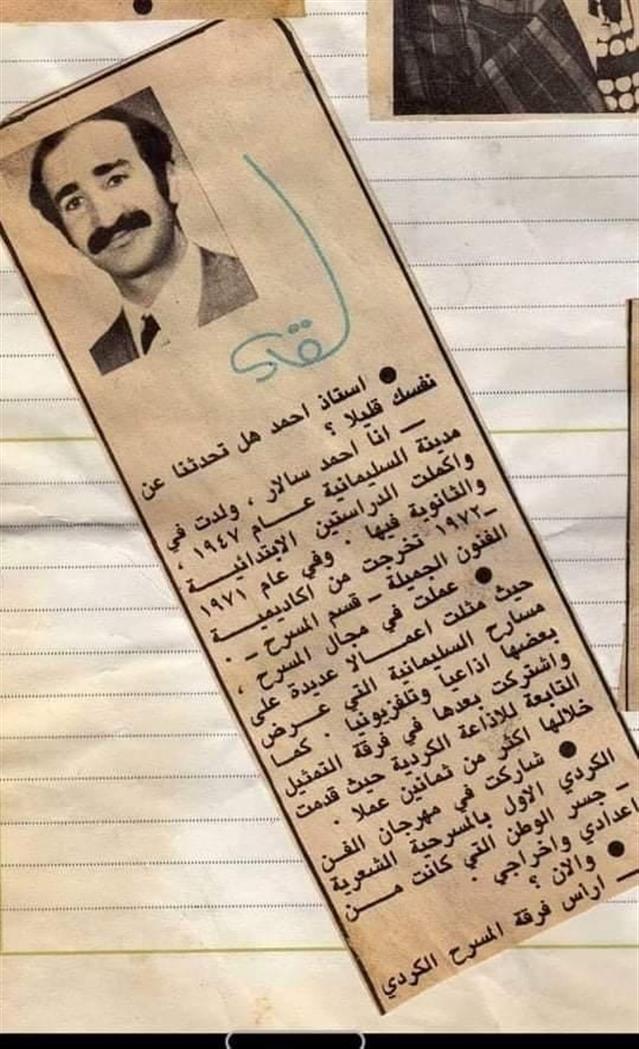 لقاء
● استاذ احمد هل تحدثنا عن
نفسك قليلا ؟
ــ انا احمد سالار ، ولدت في
مدينة السليمانية عــام ١٩٤٧ ،
واكملت الدراستين الابتدائيــة
والثانوية فيها . وفي عام ١٩٧١
ــ١٩٧٢ تخرجت من اكاديميــة
الفنون الجميلة ــ قسم المسرح ــ .
● عملت في مجال المسرح ،
حيث مثلت اعمــالا عديدة على
مسارح السليمانية التي عــرض
بعضها اذاعيا وتلفزيونيا . كمــا
واشتركت بعدها في فرقة التمثيل
التابعة للاذاعة الكردية حيث قدمت
خلالها اكثر من ثمانين عملا .
● شاركت في مهرجان الفــن
الكردي الاول بالمسرحية الشعرية
ــ جسر الوطن التي كانت مــن
اعدادي واخراجي .
● والان ؟
ــ ارأس فرقة المسرح الكردي